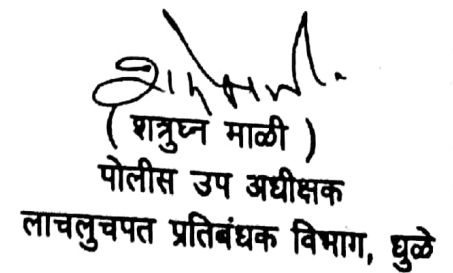 ( शत्रुघ्न माळी )
पोलीस उप अधीक्षक
लाचलुचपत प्रतिबंधक विभाग, धुळे